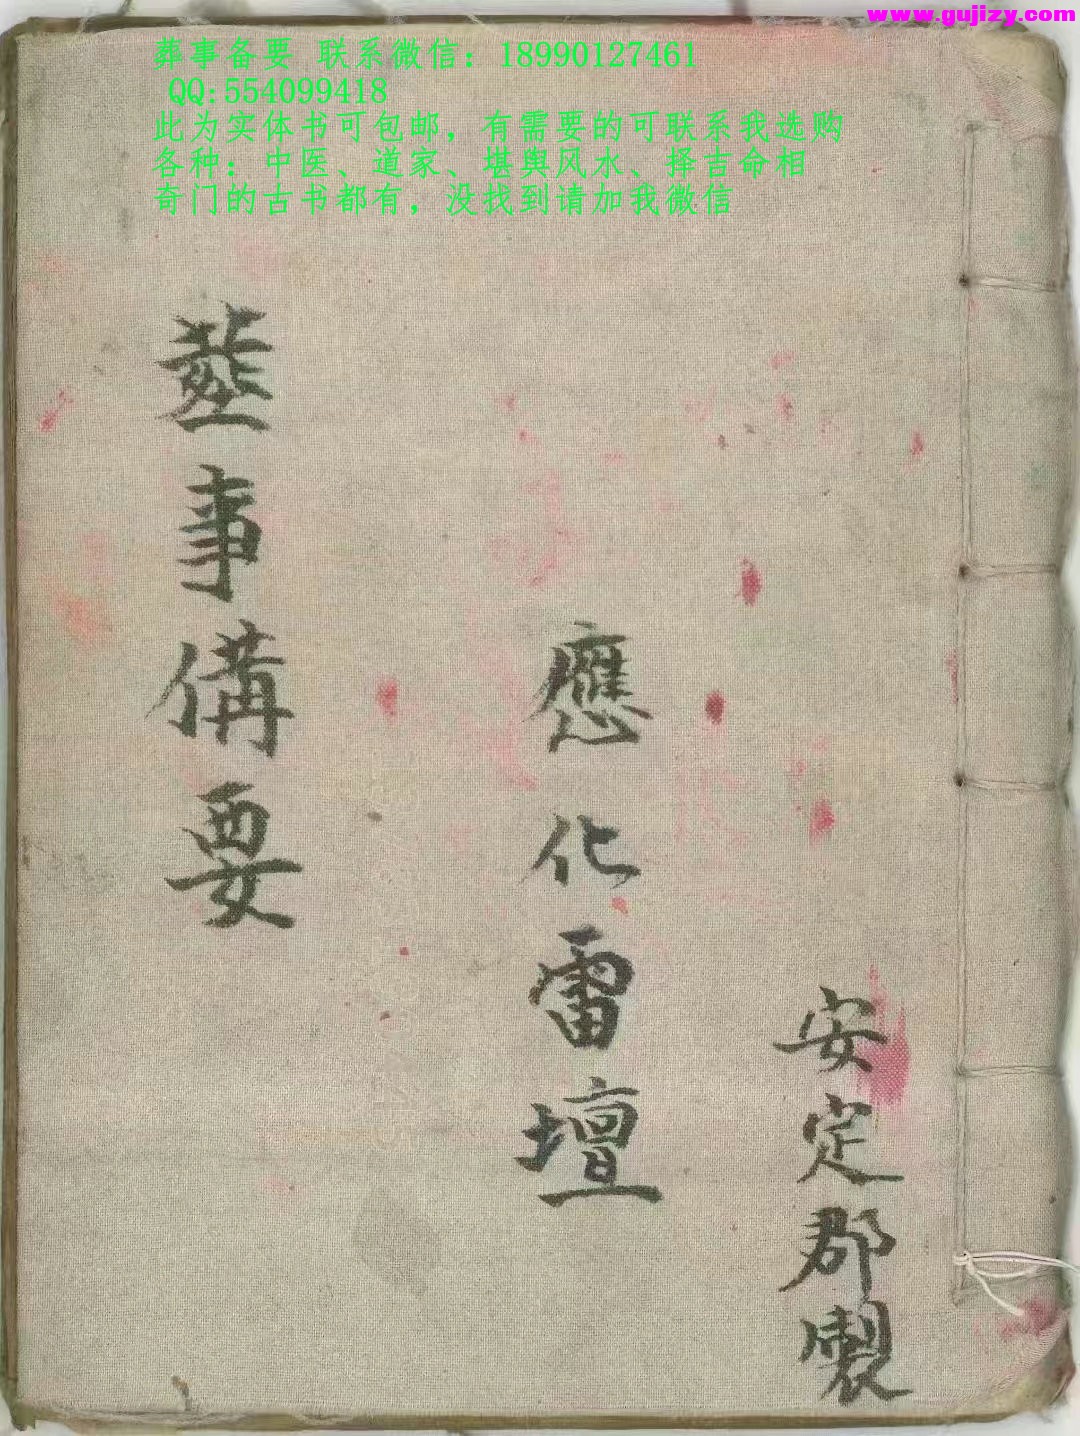 www.gujizy.com
葬事备要 联系微信：18990127461
QQ:554099418
此为实体书可包邮，有需要的可联系我选购
各种：中医、道家、堪舆风水、择吉命相
奇门的古书都有，没找到请加我微信
安定郡製
應化雷壇
葬事備要